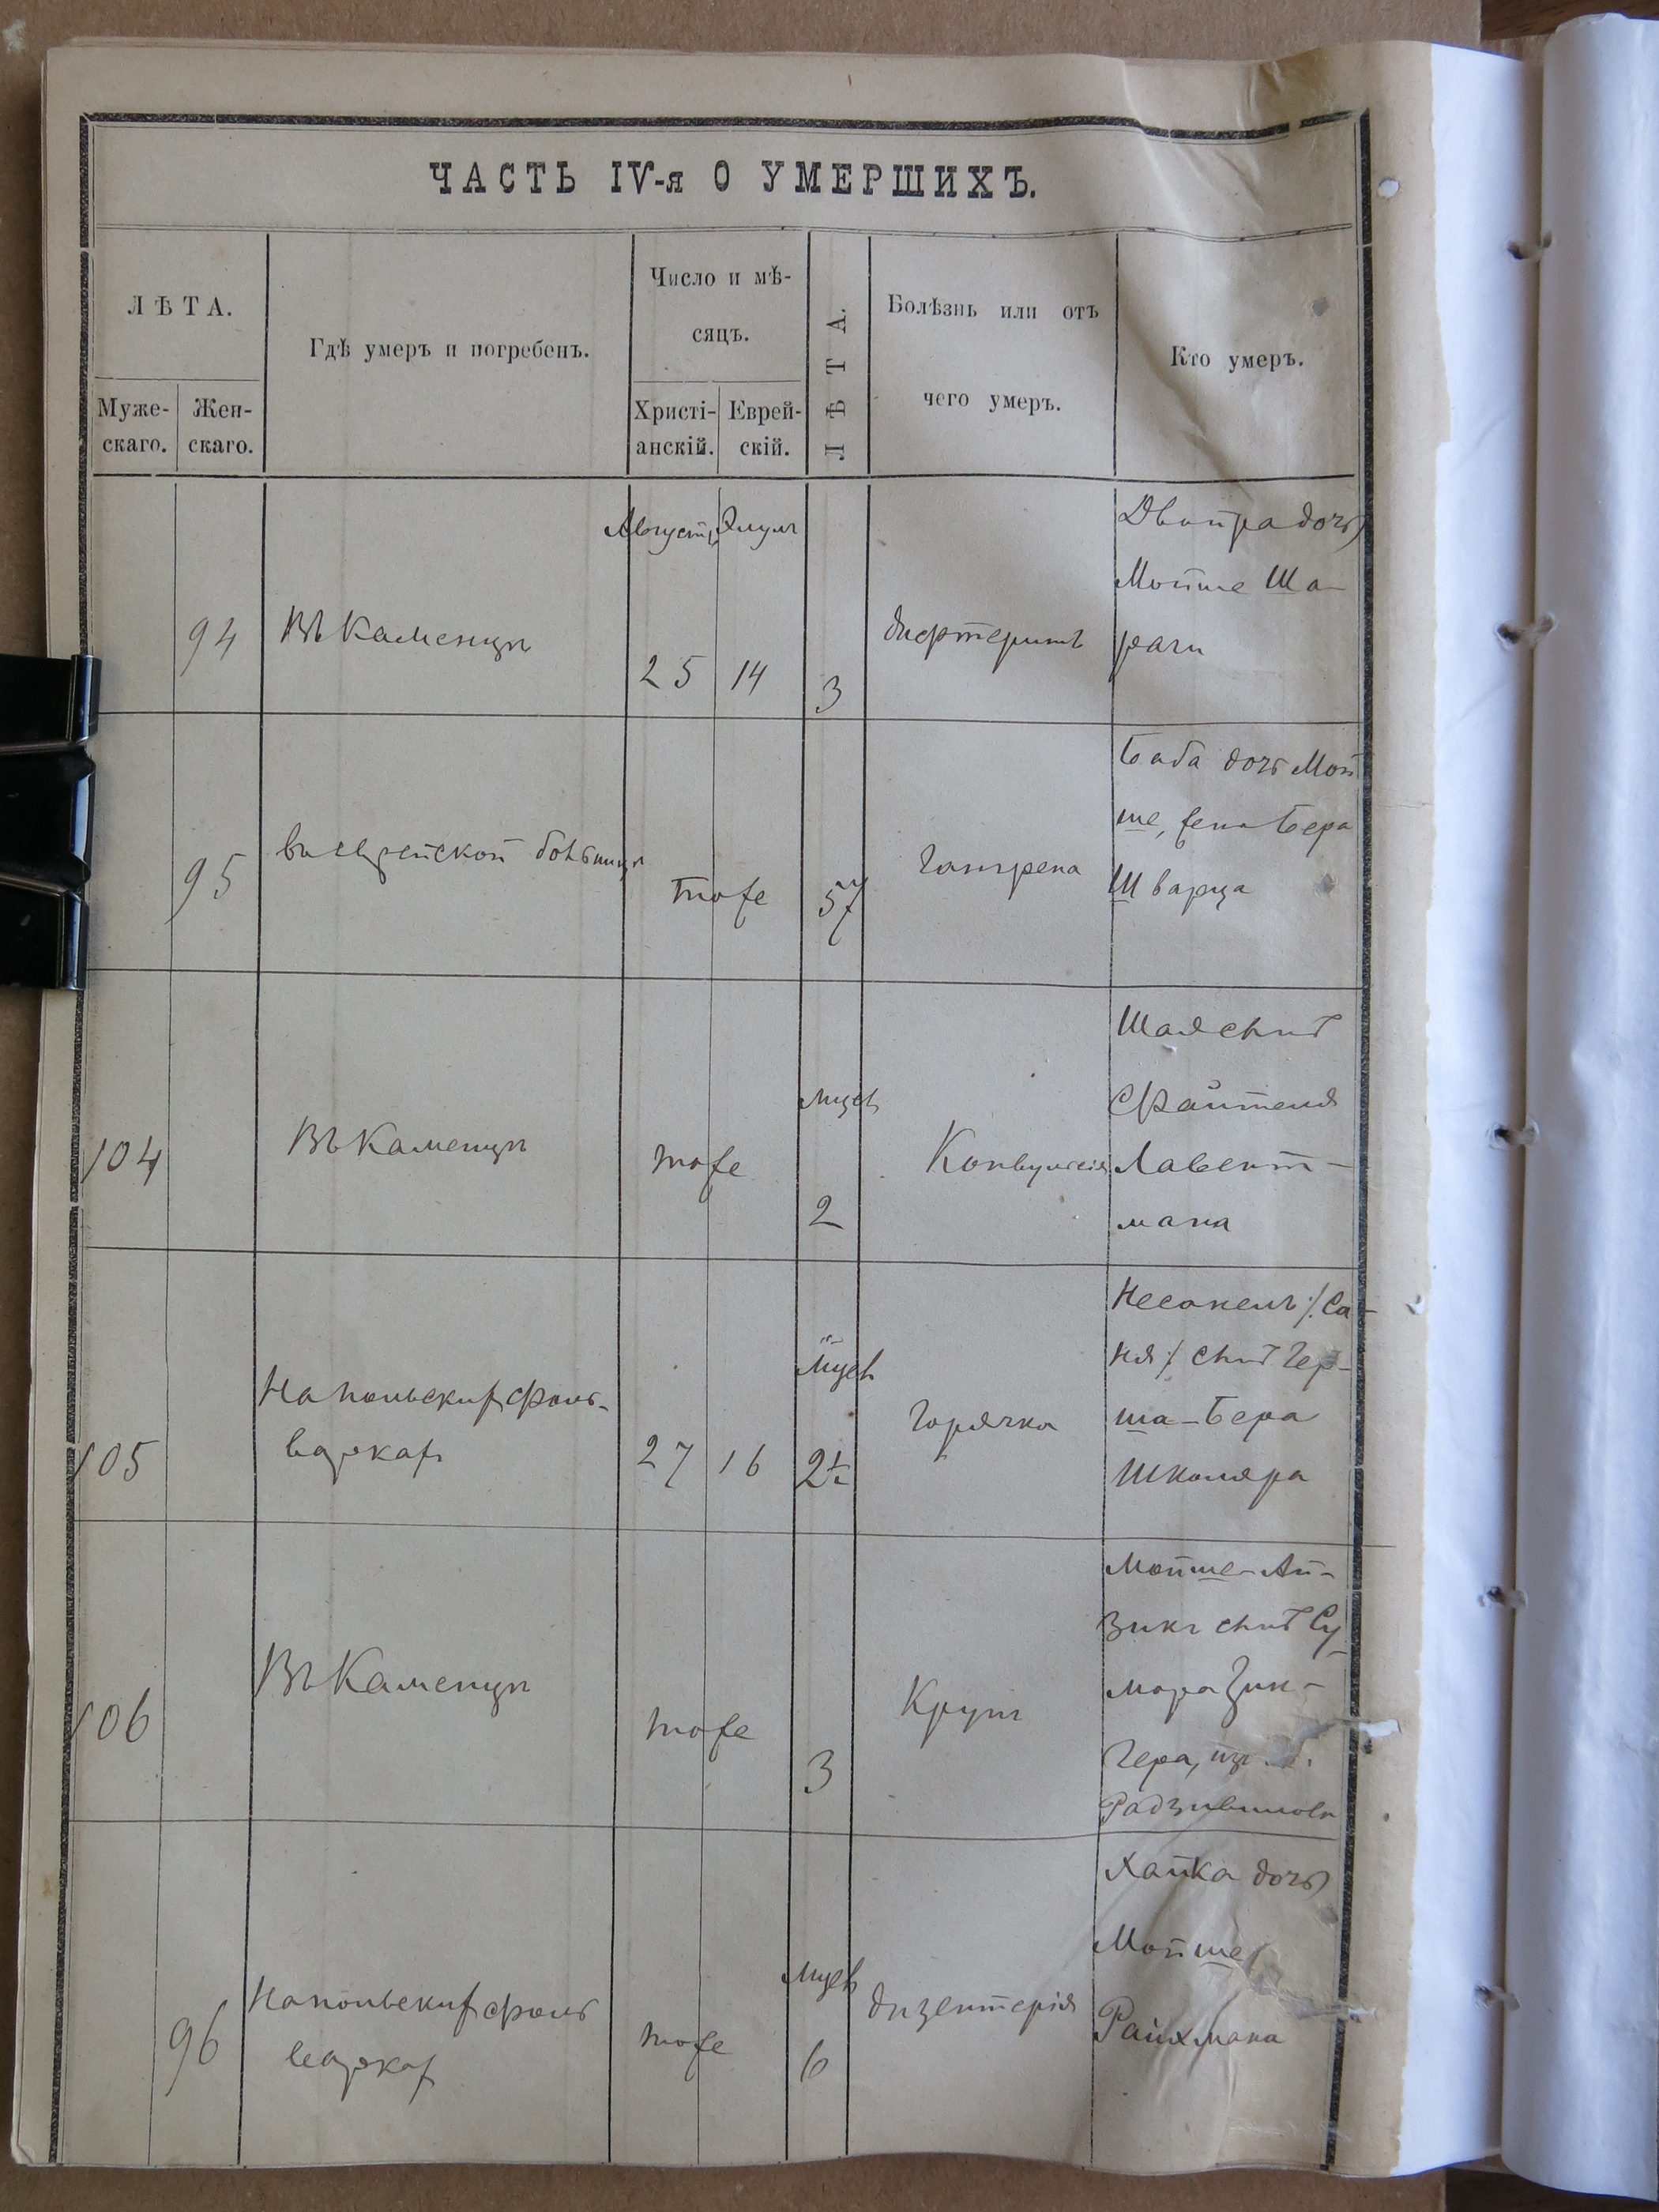 ЧАСТЬ IV-я О УМЕРШИХЪ.
ЛѢТА.
Муже-
скаго.
Жен-
скаго.
Гдѣ умеръ и погребенъ.
Число и мѣ-
сяцъ.
Христі-
анскій.
Еврей-
скій.
ЛѢТА.
Болѣзнь или отъ
чего умеръ.
Кто умеръ.
Августъ Элулъ
94
Въ Каменцѣ
25
14
3
дифтеритъ
Двойра дочь
Мойше Ша-
раги
95
въ еврейской больницѣ
тоже
57
Гангрена
Баба дочь Мой
ше, жена Бера
Шварца
104
Въ Каменцѣ
тоже
мцев
2
Конвульсія
Шая сынъ
Файтеля
Лавент-
мана
105
На польскихъ фоль-
варкахъ
27
16
мцев
2½
Горячка
/: Са-
ня :/ сынъ Гер-
ша-Бера
Школяра
106
Въ Каменцѣ
тоже
3
Крупъ
Мойше-Ай-
зикъ сынъ Су-
мера Зин-
гера, изъ
Радзивилова
96
На польскихъ фоль
варках
тоже
мцев
6
дизентерія
Хайка дочь
Мойше
Райхмана